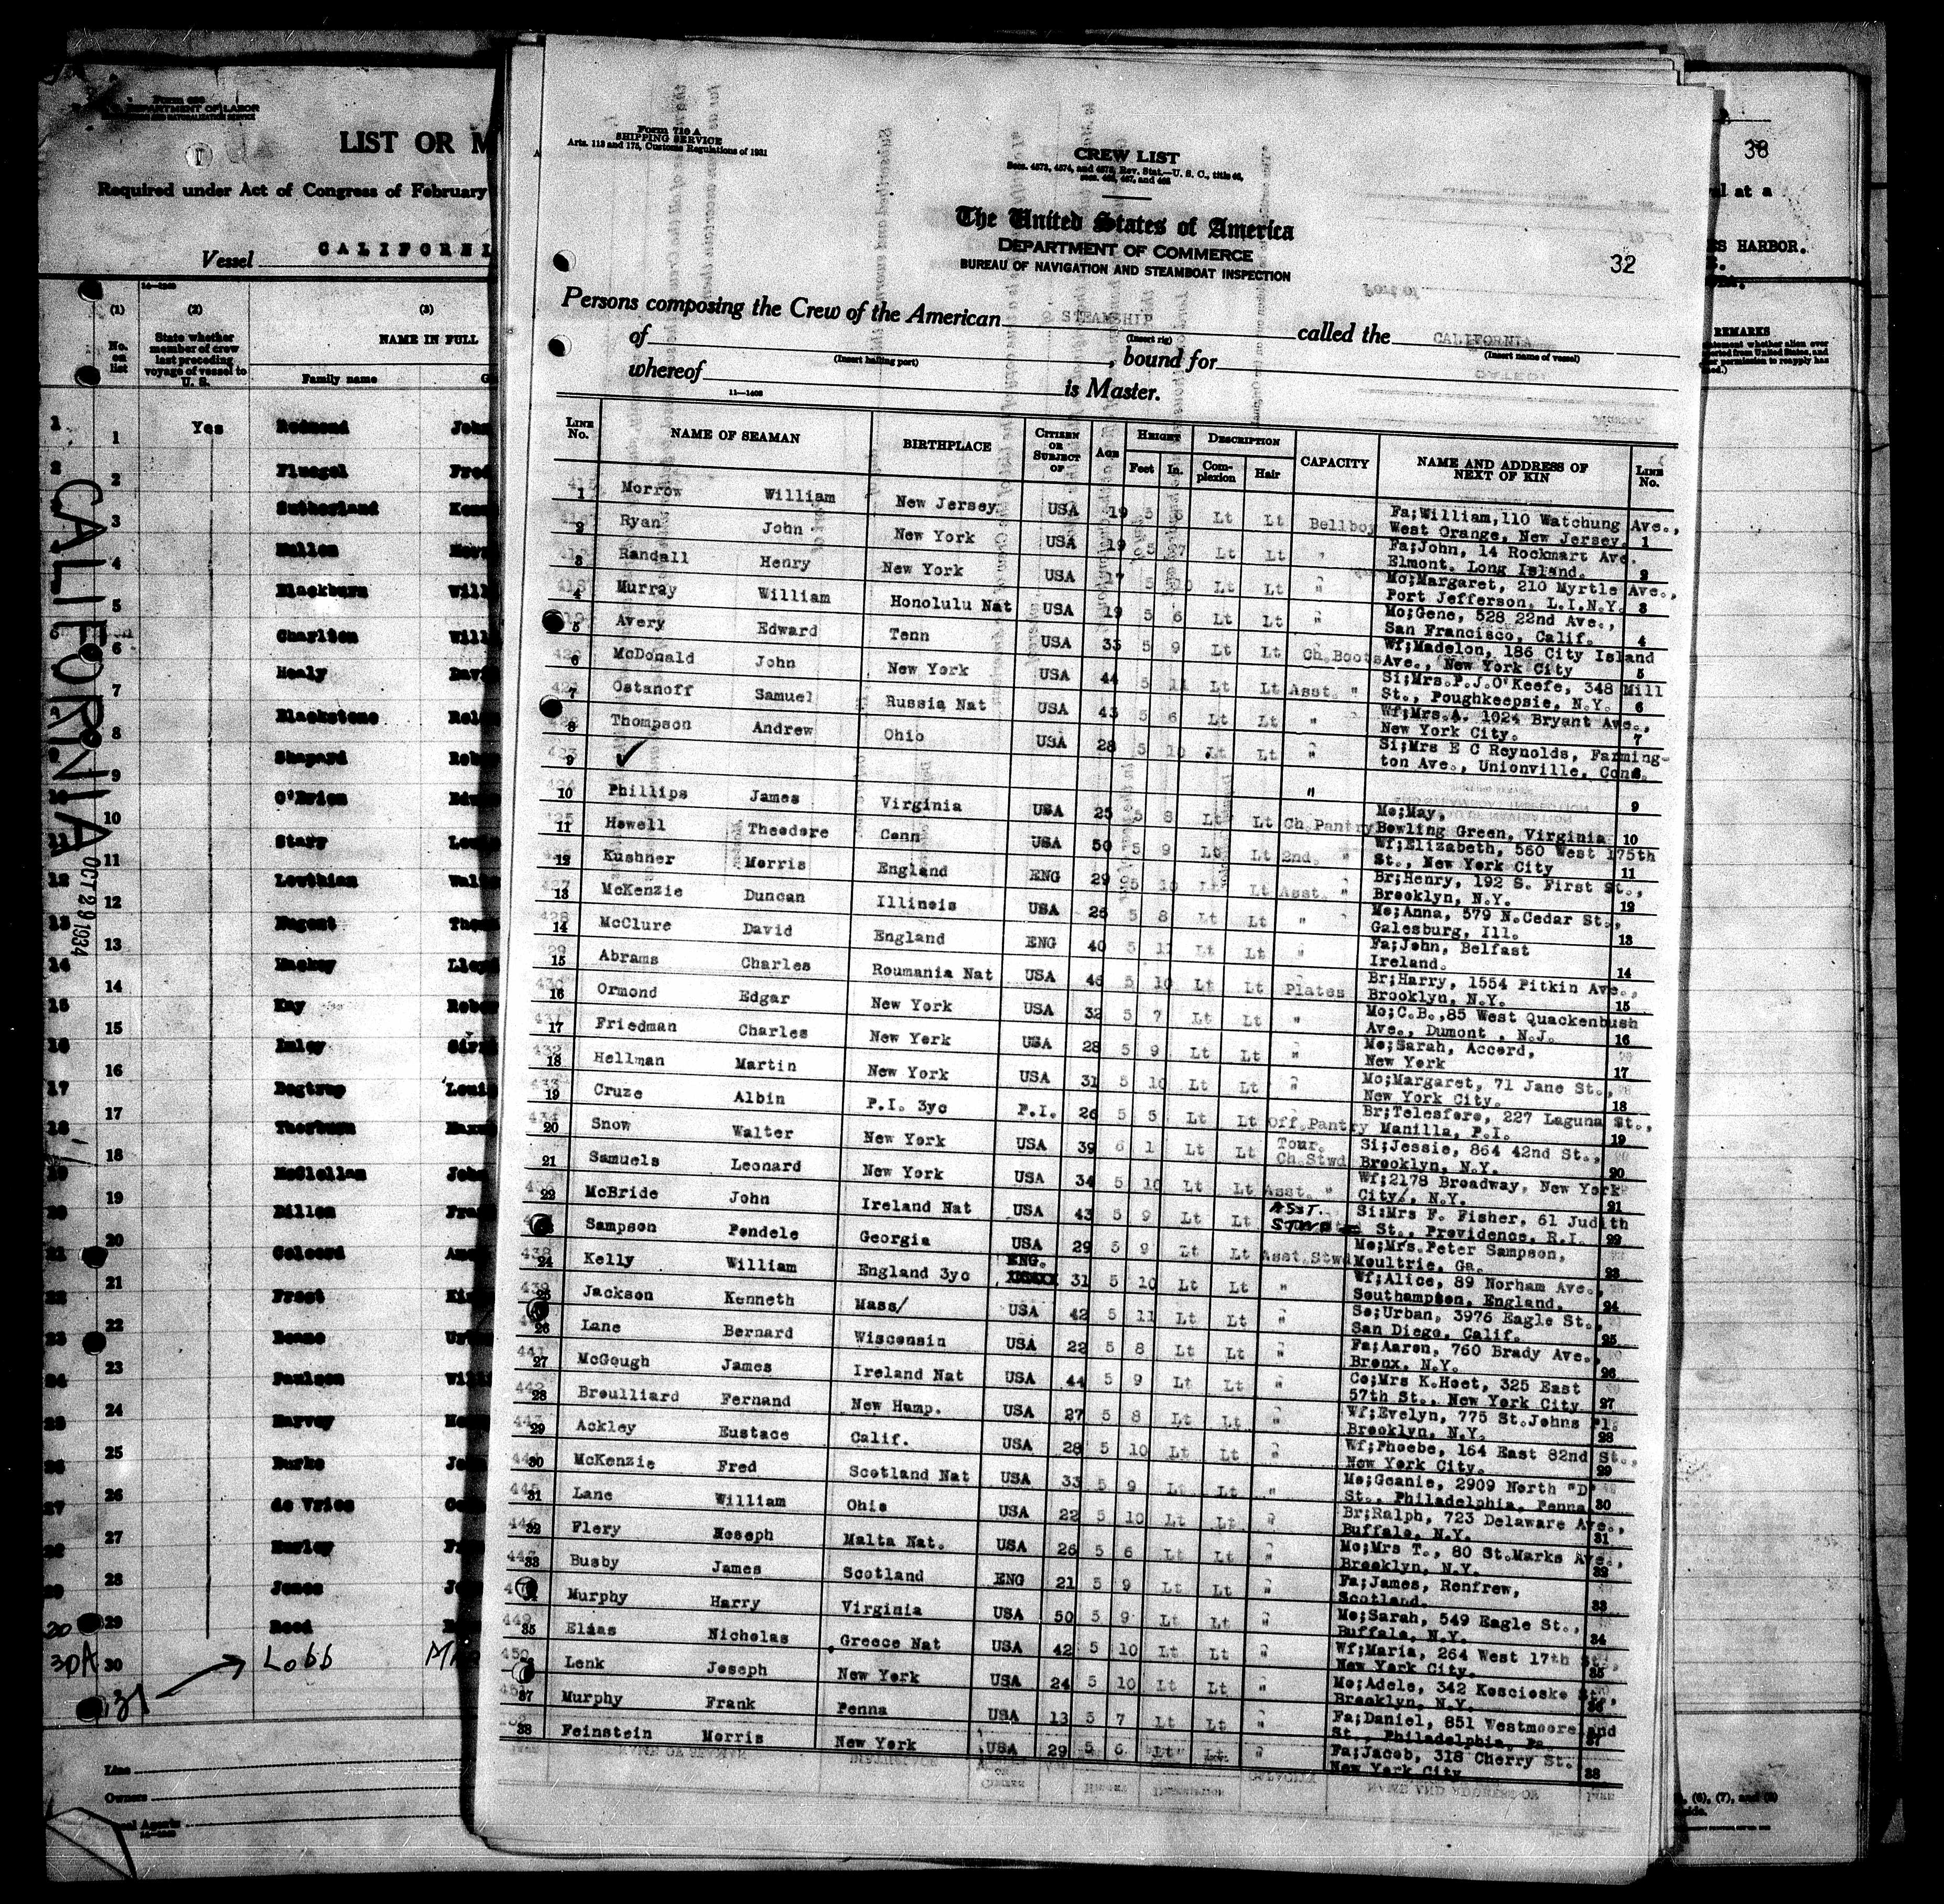 Form 680
DEPARTMENT OF LABOR
LIST OR M
Required under Act of Congress of February
Vessel CALIFORNI
(1) (2) (3)
No. on list
State whether member of crew last preceding voyage of vessel to U. S.
NAME IN FULL
Family name
1 Yes Redmond John
2 Fluegel Fred
3 Sutherland
4
5 Blackburn Will
6 Charlton Will
7 Healy Davi
8 Blackstone
9 Shepard
10 O'Brien
11 Stary
12 Lowthian
13 Nugent
14 Mackey
15 Kay
16
17 Louis
18
19 McClellan John
20 Dillon
21
22 Frost
23
24 Paulson Will
25 Harvey
26 Burke
27 de Vries
28
29 Jones
Reed
30A 30 Lobb
31
Line
Owners
CALIFORNIA
OCT 29 1934
38
al at a
ES HARBOR.
REMARKS
Form 710 A
SHIPPING SERVICE
Arts. 113 and 175, Customs Regulations of 1931
CREW LIST
Secs. 4573, 4574, and 4575, Rev. Stat.—U. S. C., title 46,
secs. 466, 467, and 468
The United States of America
DEPARTMENT OF COMMERCE
BUREAU OF NAVIGATION AND STEAMBOAT INSPECTION
32
Persons composing the Crew of the American STEAMSHIP called the CALIFORNIA
(Insert rig) (Insert name of vessel)
of , bound for
(Insert hailing port)
whereof is Master.
11—1403
LINE No. NAME OF SEAMAN BIRTHPLACE CITIZEN OR SUBJECT OF AGE HEIGHT Feet In. DESCRIPTION Complexion Hair CAPACITY NAME AND ADDRESS OF NEXT OF KIN LINE No.
1 Morrow William New Jersey USA 19 5 Lt Lt Bellboy Fa;William,110 Watchung Ave., West Orange, New Jersey. 1
2 Ryan John New York USA 19 5 7 Lt Lt " Fa;John, 14 Rockmart Ave. Elmont, Long Island. 2
3 Randall Henry New York USA 17 5 10 Lt Lt " Mo;Margaret, 210 Myrtle Ave., Port Jefferson, L.I.N.Y. 3
4 Murray William Honolulu Nat USA 19 5 6 Lt Lt " Mo;Gene, 528 22nd Ave., San Francisco, Calif. 4
5 Avery Edward Tenn USA 33 5 9 Lt Lt Ch.Boots Wf;Madelon, 186 City Island Ave., New York City 5
6 McDonald John New York USA 44 5 11 Lt Lt Asst. " Si;Mrs.P.J.O'Keefe, 348 Mill St., Poughkeepsie, N.Y. 6
7 Ostanoff Samuel Russia Nat USA 43 5 6 Lt Lt " Wf;Mrs.A. 1024 Bryant Ave., New York City. 7
8 Thompson Andrew Ohio USA 28 5 10 Lt Lt " Si;Mrs E C Reynolds, Farmington Ave., Unionville, Conn. 8
9 ✓ " 9
10 Phillips James Virginia USA 25 5 8 Lt Lt Ch Pantry Mo;May, Bowling Green, Virginia 10
11 Howell Theodore Conn USA 50 5 9 Lt Lt 2nd. " Wf;Elizabeth, 560 West 175th St., New York City 11
12 Kushner Morris England ENG 29 5 10 Lt Lt Asst. " Br;Henry, 192 S. First St., Brooklyn, N.Y. 12
13 McKenzie Duncan Illinois USA 26 5 8 Lt Lt " Mo;Anna, 579 N.Cedar St., Galesburg, Ill. 13
14 McClure David England ENG 40 5 11 Lt Lt " Fa;John, Belfast Ireland. 14
15 Abrams Charles Roumania Nat USA 46 5 10 Lt Lt Plates Br;Harry, 1554 Pitkin Ave., Brooklyn, N.Y. 15
16 Ormond Edgar New York USA 32 5 7 Lt Lt " Mo;C.B.,85 West Quackenbush Ave., Dumont , N.J. 16
17 Friedman Charles New York USA 28 5 9 Lt Lt " Mo;Sarah, Accord, New York 17
18 Hellman Martin New York USA 31 5 10 Lt Lt " Mo;Margaret, 71 Jane St., New York City. 18
19 Cruze Albin P.I. 3yc P.I. 26 5 5 Lt Lt Off Pantry Br;Telesfore, 227 Laguna St., Manilla, P.I. 19
20 Snow Walter New York USA 39 6 1 Lt Lt Tour. Ch.Stwd Si;Jessie, 864 42nd St., Brooklyn, N.Y. 20
21 Samuels Leonard New York USA 34 5 10 Lt Lt Asst. " Wf;2178 Broadway, New York City/, N.Y. 21
22 McBride John Ireland Nat USA 43 5 9 Lt Lt ASST. STWD Si;Mrs F. Fisher, 61 Judith St., Providence, R.I. 22
Sampson Pendele Georgia USA 29 5 9 Lt Lt Asst.Stwd Mo;Mrs.Peter Sampson, Moultrie, Ga. 23
24 Kelly William England 3yc ENG. 31 5 10 Lt Lt " Wf;Alice, 89 Norham Ave., Southampton, England. 24
25 Jackson Kenneth Mass/ USA 42 5 11 Lt Lt " So;Urban, 3976 Eagle St., San Diego, Calif. 25
26 Lane Bernard Wisconsin USA 22 5 8 Lt Lt " Fa;Aaron, 760 Brady Ave., Bronx, N.Y. 26
27 McGough James Ireland Nat USA 44 5 9 Lt Lt " Co;Mrs K.Hoet, 325 East 57th St., New York City 27
28 Broulliard Fernand New Hamp. USA 27 5 8 Lt Lt " Wf;Evelyn, 775 St.Johns Pl. Brooklyn, N.Y. 28
29 Ackley Eustace Calif. USA 28 5 10 Lt Lt " Wf;Phoebe, 164 East 82nd St., New York City. 29
30 McKenzie Fred Scotland Nat USA 33 5 9 Lt Lt " Mo;Geanie, 2909 North "D" St., Philadelphia, Penna 30
31 Lane William Ohio USA 22 5 10 Lt Lt " Br;Ralph, 723 Delaware Ave., Buffalo, N.Y. 31
32 Flery Hoseph Malta Nat. USA 26 5 6 Lt Lt " Mo;Mrs T., 80 St.Marks Ave., Brooklyn, N.Y. 32
33 Busby James Scotland ENG 21 5 9 Lt Lt " Fa;James, Renfrew, Scotland. 33
Murphy Harry Virginia USA 50 5 9 Lt Lt " Mo;Sarah, 549 Eagle St., Buffalo, N.Y. 34
35 Elias Nicholas Greece Nat USA 42 5 10 Lt Lt " Wf;Maria, 264 West 17th St., New York City. 35
Lenk Joseph New York USA 24 5 10 Lt Lt " Mo;Adele, 342 Koscioske St., Brooklyn, N.Y. 36
37 Murphy Frank Penna USA 13 5 7 Lt Lt " Fa;Daniel, 851 Westmooreland St., Philadelphia, Pa. 37
38 Feinstein Morris New York USA 29 5 6 Lt Lt " Fa;Jacob, 318 Cherry St. New York City 38